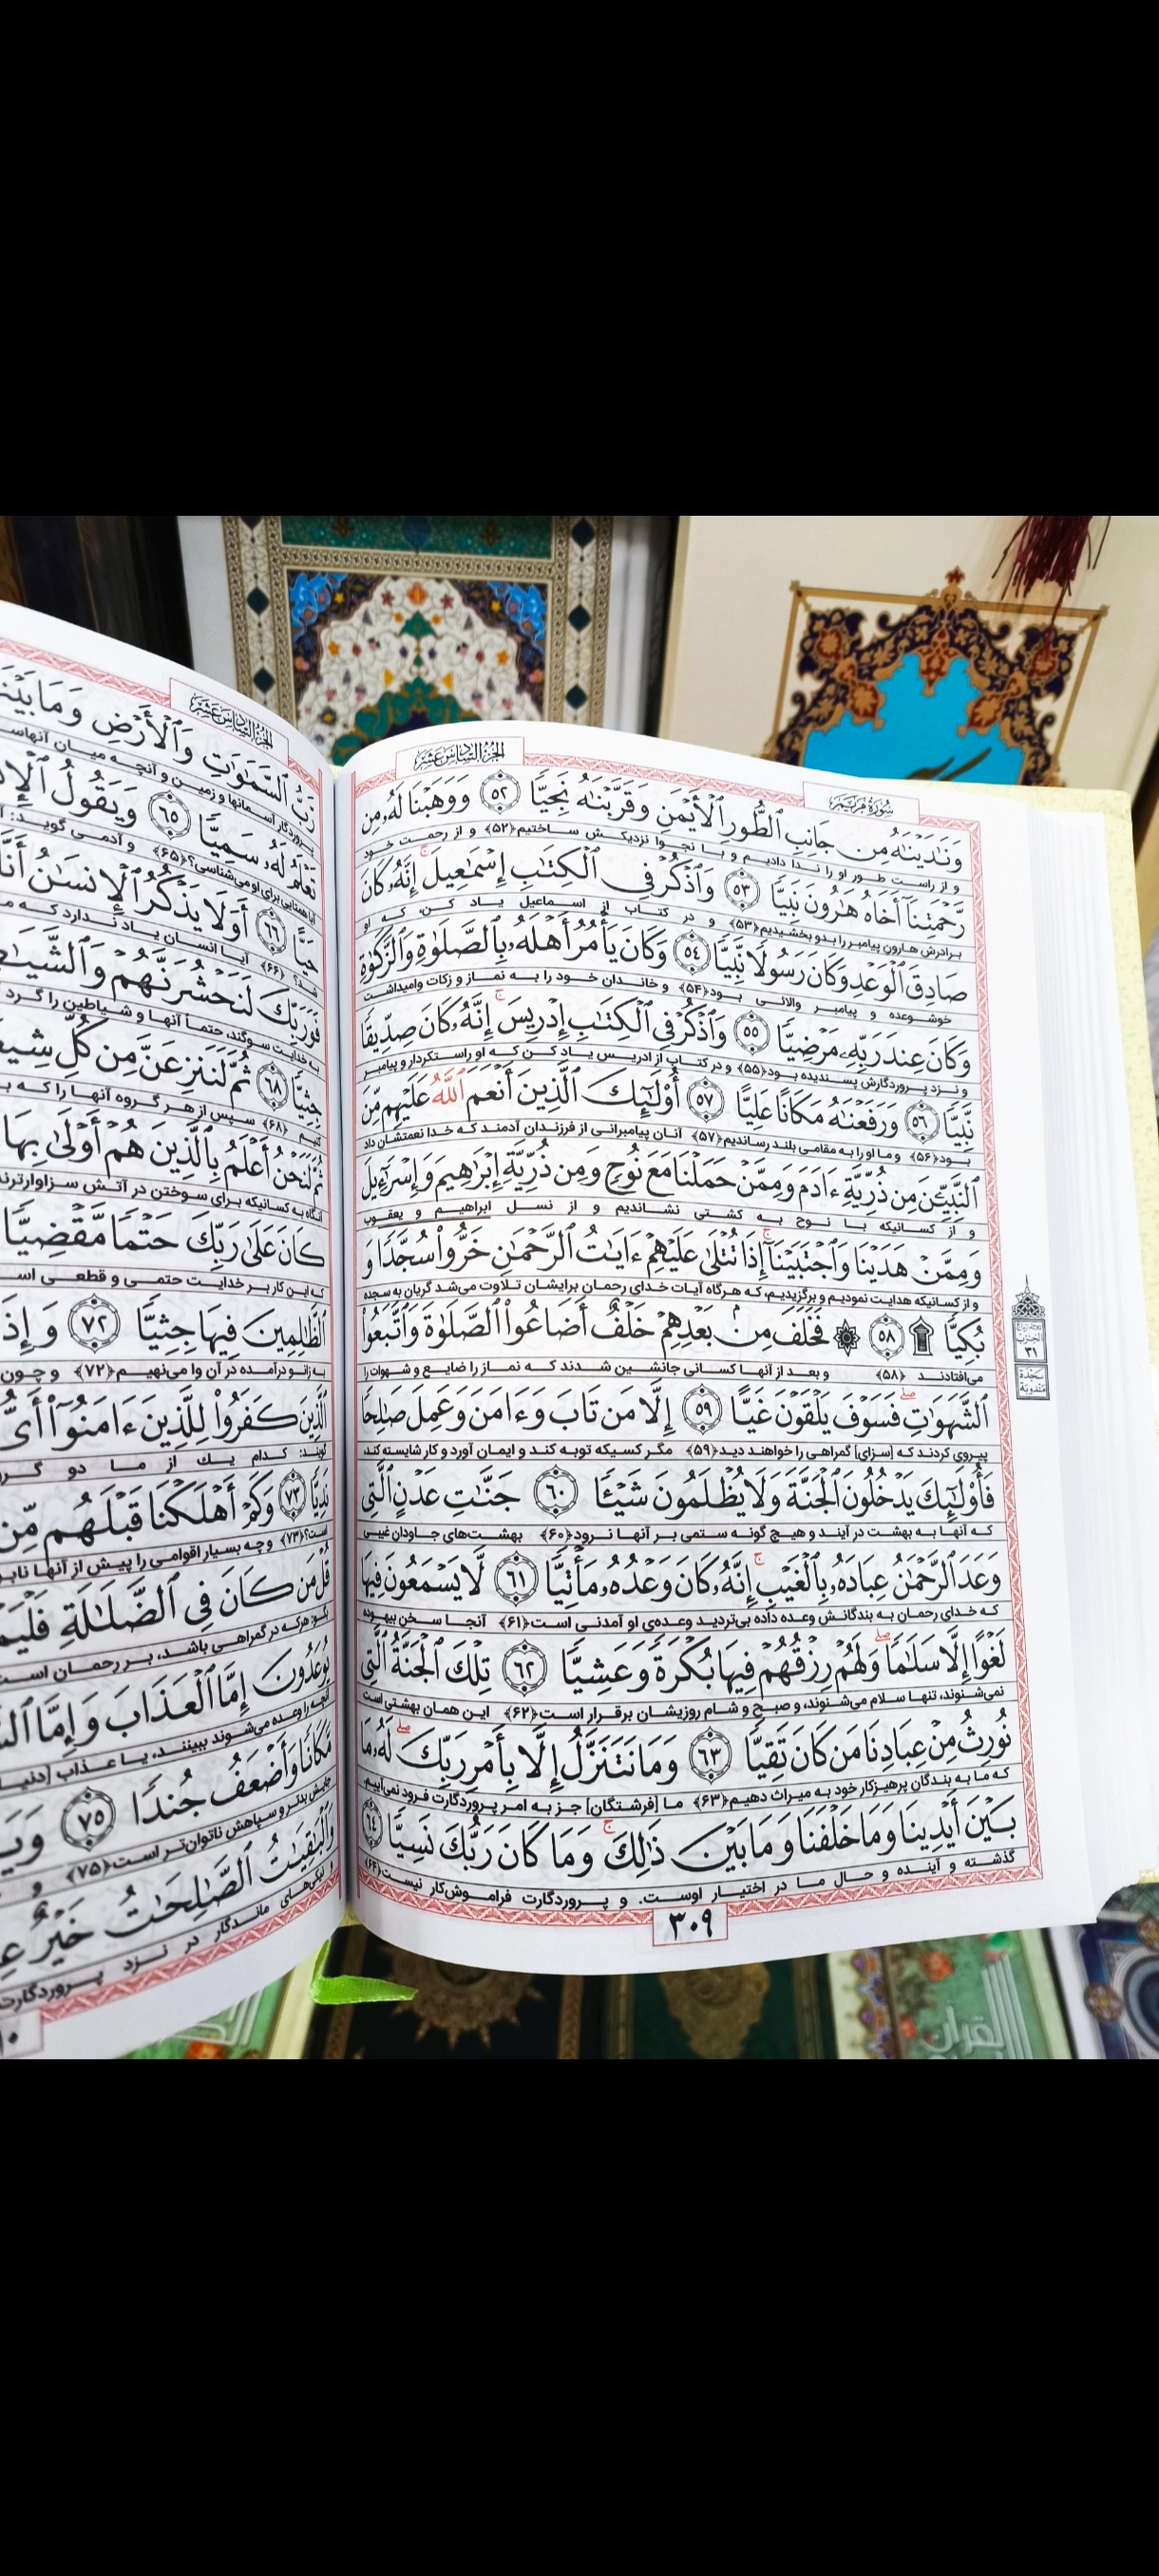 سُورَةُ مَريَم
الجُزءُ السَّادِسَ عَشَرَ
وَنَٰدَيۡنَٰهُ مِن جَانِبِ ٱلطُّورِ ٱلۡأَيۡمَنِ وَقَرَّبۡنَٰهُ نَجِيّٗا ٥٢ وَوَهَبۡنَا لَهُۥ مِن
و از راست طور او را ندا دادیم و با نجوا نزدیکش ساختیم﴿۵۲﴾ و از رحمت خود
رَّحۡمَتِنَآ أَخَاهُ هَٰرُونَ نَبِيّٗا ٥٣ وَٱذۡكُرۡ فِي ٱلۡكِتَٰبِ إِسۡمَٰعِيلَۚ إِنَّهُۥ كَانَ
برادرش هارون پیامبر را بدو بخشیدیم﴿۵۳﴾ و در کتاب از اسماعیل یاد کن، که او
صَادِقَ ٱلۡوَعۡدِ وَكَانَ رَسُولٗا نَّبِيّٗا ٥٤ وَكَانَ يَأۡمُرُ أَهۡلَهُۥ بِٱلصَّلَوٰةِ وَٱلزَّكَوٰةِ
خوش‌وعده و پیامبر والائی بود﴿۵۴﴾ و خاندان خود را به نماز و زکات وامیداشت
وَكَانَ عِندَ رَبِّهِۦ مَرۡضِيّٗا ٥٥ وَٱذۡكُرۡ فِي ٱلۡكِتَٰبِ إِدۡرِيسَۚ إِنَّهُۥ كَانَ صِدِّيقٗا
و نزد پروردگارش پسندیده بود﴿۵۵﴾ و در کتاب از ادریس یاد کن که او راستکردار و پیامبر
نَّبِيّٗا ٥٦ وَرَفَعۡنَٰهُ مَكَانًا عَلِيًّا ٥٧ أُوْلَٰٓئِكَ ٱلَّذِينَ أَنۡعَمَ ٱللَّهُ عَلَيۡهِم مِّنَ
بود﴿۵۶﴾ و ما او را به مقامی بلند رساندیم﴿۵۷﴾ آنان پیامبرانی از فرزندان آدمند که خدا نعمتشان داد
ٱلنَّبِيِّـۧنَ مِن ذُرِّيَّةِ ءَادَمَ وَمِمَّنۡ حَمَلۡنَا مَعَ نُوحٖ وَمِن ذُرِّيَّةِ إِبۡرَٰهِيمَ وَإِسۡرَٰٓءِيلَ
و از کسانیکه با نوح به کشتی نشاندیم و از نسل ابراهیم و یعقوب
وَمِمَّنۡ هَدَيۡنَا وَٱجۡتَبَيۡنَآۚ إِذَا تُتۡلَىٰ عَلَيۡهِمۡ ءَايَٰتُ ٱلرَّحۡمَٰنِ خَرُّواْ سُجَّدٗا وَ
و از کسانیکه هدایت نمودیم و برگزیدیم، که هرگاه آیات خدای رحمان برایشان تلاوت می‌شد گریان به سجده
بُكِيّٗا ۩ ٥٨ ۞ فَخَلَفَ مِنۢ بَعۡدِهِمۡ خَلۡفٌ أَضَاعُواْ ٱلصَّلَوٰةَ وَٱتَّبَعُواْ
می‌افتادند ﴿۵۸﴾ و بعد از آنها کسانی جانشین شدند که نماز را ضایع و شهوات را
ٱلشَّهَوَٰتِۖ فَسَوۡفَ يَلۡقَوۡنَ غَيًّا ٥٩ إِلَّا مَن تَابَ وَءَامَنَ وَعَمِلَ صَٰلِحٗا
پیروی کردند که [سزای] گمراهی را خواهند دید﴿۵۹﴾ مگر کسیکه توبه کند و ایمان آورد و کار شایسته کند،
فَأُوْلَٰٓئِكَ يَدۡخُلُونَ ٱلۡجَنَّةَ وَلَا يُظۡلَمُونَ شَيۡـٔٗا ٦٠ جَنَّٰتِ عَدۡنٍ ٱلَّتِي
که آنها به بهشت در آیند و هیچ گونه ستمی بر آنها نرود﴿۶۰﴾ بهشت‌های جاودان غیبی
وَعَدَ ٱلرَّحۡمَٰنُ عِبَادَهُۥ بِٱلۡغَيۡبِۚ إِنَّهُۥ كَانَ وَعۡدُهُۥ مَأۡتِيّٗا ٦١ لَّا يَسۡمَعُونَ فِيهَا
که خدای رحمان به بندگانش وعده داده بی‌تردید وعده‌ی او آمدنی است﴿۶۱﴾ آنجا سخن بیهوده
لَغۡوًا إِلَّا سَلَٰمٗاۖ وَلَهُمۡ رِزۡقُهُمۡ فِيهَا بُكۡرَةٗ وَعَشِيّٗا ٦٢ تِلۡكَ ٱلۡجَنَّةُ ٱلَّتِي
نمی‌شنوند، تنها سلام می‌شنوند، و صبح و شام روزیشان برقرار است﴿۶۲﴾ این همان بهشتی است
نُورِثُ مِنۡ عِبَادِنَا مَن كَانَ تَقِيّٗا ٦٣ وَمَا نَتَنَزَّلُ إِلَّا بِأَمۡرِ رَبِّكَۖ لَهُۥ مَا
که ما به بندگان پرهیزکار خود به میراث دهیم﴿۶۳﴾ ما [فرشتگان] جز به امر پروردگارت فرود نمی‌آییم
بَيۡنَ أَيۡدِينَا وَمَا خَلۡفَنَا وَمَا بَيۡنَ ذَٰلِكَۚ وَمَا كَانَ رَبُّكَ نَسِيّٗا ٦٤
گذشته و آینده و حال ما در اختیار اوست. و پروردگارت فراموش‌کار نیست﴿۶۴﴾
٣٠٩
الحزب
٣١
سَجدَة
مَندوبة
الجُزءُ السَّادِسَ عَشَرَ
رَّبُّ ٱلسَّمَٰوَٰتِ وَٱلۡأَرۡضِ وَمَا
پروردگار آسمانها و زمین و آنچه میان
تَعۡلَمُ لَهُۥ سَمِيّٗا ٦٥ وَيَقُولُ
آیا همتایی برای او می‌شناسی؟﴿۶۵﴾ و آدمی گوید:
حَيًّا ٦٦ أَوَلَا يَذۡكُرُ ٱلۡإِنسَٰنُ أَنَّا
شد؟ ﴿۶۶﴾ آیا انسان یاد ندارد که
فَوَرَبِّكَ لَنَحۡشُرَنَّهُمۡ
به خدایت سوگند، حتماً آنها و شیاطین را گرد
جِثِيّٗا ٦٨ ثُمَّ لَنَنزِعَنَّ مِن كُلِّ
کنیم ﴿۶۸﴾ سپس از هر گروه آنها را که
ثُمَّ لَنَحۡنُ أَعۡلَمُ بِٱلَّذِينَ هُمۡ أَوۡلَىٰ بِهَا
آنگاه به کسانیکه برای سوختن در آتش سزاوارترند
كَانَ عَلَىٰ رَبِّكَ حَتۡمٗا مَّقۡضِيّٗا
که این کار بر خدایت حتمی و قطعی
ٱلظَّٰلِمِينَ فِيهَا جِثِيّٗا ٧٢ وَ
به زانو درآمده در آن وا می‌نهیم﴿۷۲﴾ و چون
ٱلَّذِينَ كَفَرُواْ لِلَّذِينَ ءَامَنُوٓاْ أَيُّ
گویند: کدام یك از ما دو
نَدِيّٗا ٧٣ وَكَمۡ أَهۡلَكۡنَا قَبۡلَهُم مِّن
است؟﴿۷۳﴾ و چه بسیار اقوامی را پیش از آنها
قُلۡ مَن كَانَ فِي ٱلضَّلَٰلَةِ
بگو: هرکه در گمراهی باشد، بر رحمان
يُوعَدُونَ إِمَّا ٱلۡعَذَابَ وَإِمَّا
آنچه را وعده می‌شوند ببینند، یا عذاب [دنیا
مَّكَانٗا وَأَضۡعَفُ جُندٗا ٧٥
جایش بدتر و سپاهش ناتوان‌تر است﴿۷۵﴾
وَٱلۡبَٰقِيَٰتُ ٱلصَّٰلِحَٰتُ خَيۡرٌ
و نیکی‌های ماندگار در نزد